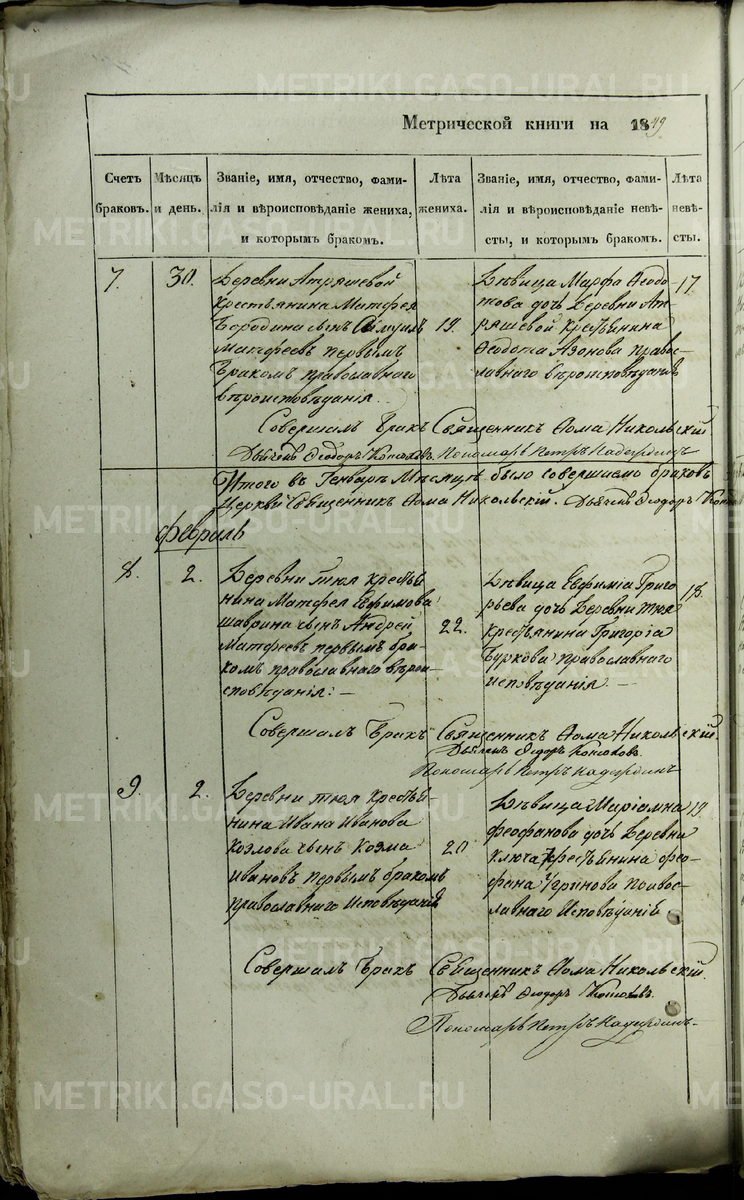 Метрической книги на 1849
Счетъ браковъ.
Мѣсяцъ и день.
Званіе, имя, отчество, фамилія и вѣроисповѣданіе жениха, и которымъ бракомъ.
Лѣта жениха.
Званіе, имя, отчество, фамилія и вѣроисповѣданіе невѣсты, и которымъ бракомъ.
Лѣта невѣсты.
7.
30.
Деревни Атряшевой
крестьянина Матфея
Бородина сынъ
Матфеевъ первымъ
бракомъ православнаго
вѣроисповѣданія.
19.
Дѣвица Марфа Ѳедо-
това дочь деревни Ат-
ряшевой крестьянина
Ѳедота Азонова правос-
лавнаго вѣроисповѣданія
17.
Совершалъ бракъ Священникъ Ѳома Никольскій.
Дьячекъ Ѳеодоръ Пономарь Петръ
Итого въ Генварѣ Мѣсяцѣ было совершаемо браковъ
Церкви Священникъ Ѳома Никольскій. Дьячекъ Ѳеодоръ
Февраль
8.
2.
Деревни Тюя крестья
нина Матфея Евфимова
Шаврина сынъ Андрей
Матфеевъ первымъ бра-
комъ православнаго вѣрои-
сповѣданія. —
22.
Дѣвица Евфимія Григо
рьева дочь деревни Тюя
крестьянина Григорія
Буркова православнаго
исповѣданія. —
18.
Совершалъ бракъ Священникъ Ѳома Никольскій.
Дьячекъ Ѳедоръ
Пономарь Петръ
9.
2.
Деревни Тюя крестья-
нина Ивана Иванова
Козлова сынъ Козма
Ивановъ первымъ бракомъ
православнаго Исповѣданія
20
Дѣвица Маріамна
Феофанова дочь деревни
Ключа крестьянина Фео-
фана Православнаго Исповѣданія
19.
Совершалъ бракъ Священникъ Ѳома Никольскій.
Дьячекъ Ѳеодоръ
Пономарь Петръ
METRIKI.GASO-URAL.RU